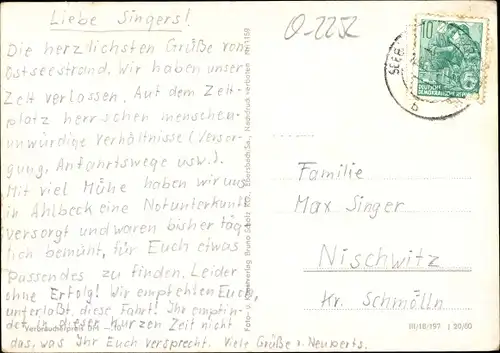 Liebe Singers!
Die herzlichsten Grüße vom
Ostseestrand. Wir haben unser
Zelt verlassen. Auf dem Zelt-
platz herrschen menschen-
unwürdige Verhältnisse (Versor-
gung, Anfahrtswege usw.).
Mit viel Mühe haben wir uns
in Ahlbeck eine Notunterkunft
versorgt und waren bisher täg
lich bemüht, für Euch etwas
Passendes zu finden. Leider
ohne Erfolg! Wir empfehlen Euch,
unterlaßt diese Fahrt! Ihr empfin-
det in dieser kurzen Zeit nicht
das, was Ihr Euch versprecht. Viele Grüße v. Neuperts.
Verbraucherpreis DM
Foto- u. Verlag Bruno Scholz KG., Ebersbach/Sa., Nachdruck verboten 1159
O-2252
10
DEUTSCHE
DEMOKRATISCHE REPUBLIK
SEEB
b
Familie
Max Singer
Nischwitz
Kr. Schmölln
III/18/197 J 20/60